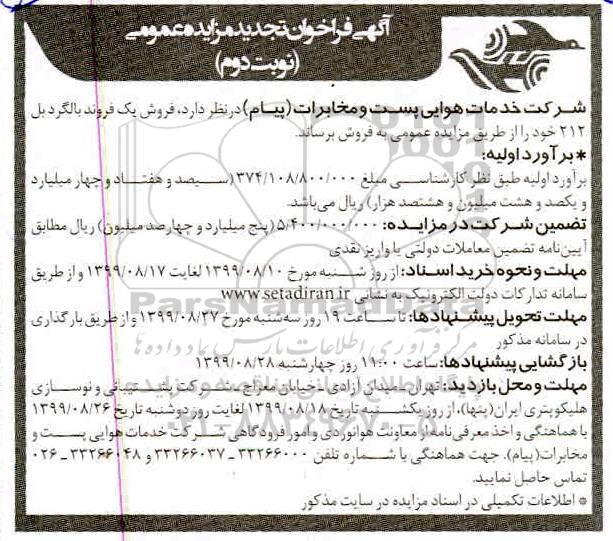 آگهی فراخوان تجدید مزایده عمومی
(نوبت دوم)
شرکت خدمات هوایی پست و مخابرات (پیام) درنظر دارد، فروش یک فروند بالگرد بل
۲۱۲ خود را از طریق مزایده عمومی به فروش برساند.
* برآورد اولیه:
برآورد اولیه طبق نظر کارشناسی مبلغ ۳۷۴/۱۰۸/۸۰۰/۰۰۰ (سیصد و هفتاد و چهار میلیارد
و یکصد و هشت میلیون و هشتصد هزار) ریال می‌باشد.
تضمین شرکت در مزایده: ۵/۴۰۰/۰۰۰/۰۰۰ (پنج میلیارد و چهارصد میلیون) ریال مطابق
آیین‌نامه تضمین معاملات دولتی یا واریز نقدی
مهلت و نحوه خرید اسناد: از روز شنبه مورخ ۱۳۹۹/۰۸/۱۰ لغایت ۱۳۹۹/۰۸/۱۷ و از طریق
سامانه تدارکات دولت الکترونیک به نشانی www.setadiran.ir
مهلت تحویل پیشنهادها: تا ساعت ۱۹ روز سه‌شنبه مورخ ۱۳۹۹/۰۸/۲۷ و از طریق بارگذاری
در سامانه مذکور
بازگشایی پیشنهادها: ساعت ۱۱:۰۰ روز چهارشنبه ۱۳۹۹/۰۸/۲۸
مهلت و محل بازدید: تهران، میدان آزادی، خیابان معراج، شرکت پشتیبانی و نوسازی
هلیکوپتری ایران (پنها)، از روز یکشنبه تاریخ ۱۳۹۹/۰۸/۱۸ لغایت روز دوشنبه تاریخ ۱۳۹۹/۰۸/۲۶
با هماهنگی و اخذ معرفی‌نامه از معاونت هوانوردی و امور فرودگاهی شرکت خدمات هوایی پست و
مخابرات (پیام). جهت هماهنگی با شماره تلفن ۳۳۲۶۶۰۰۰ ـ ۳۳۲۶۶۰۳۷ و ۳۳۲۶۶۰۴۸ ـ ۰۲۶
تماس حاصل نمایید.
* اطلاعات تکمیلی در اسناد مزایده در سایت مذکور
ParsNamadData
مرکز فرآوری اطلاعات پارس نماد داده ها
۰۲۱-۸۸۳۴۹۶۷۰-۵